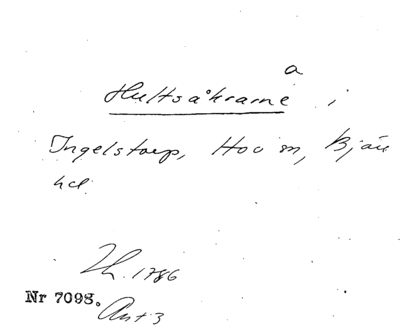 a
Hultsåkrarne i
Ingelstorp, Hov sn, Bjäre
hd.
Lh. 1786
Nr 7098.
Akt 3